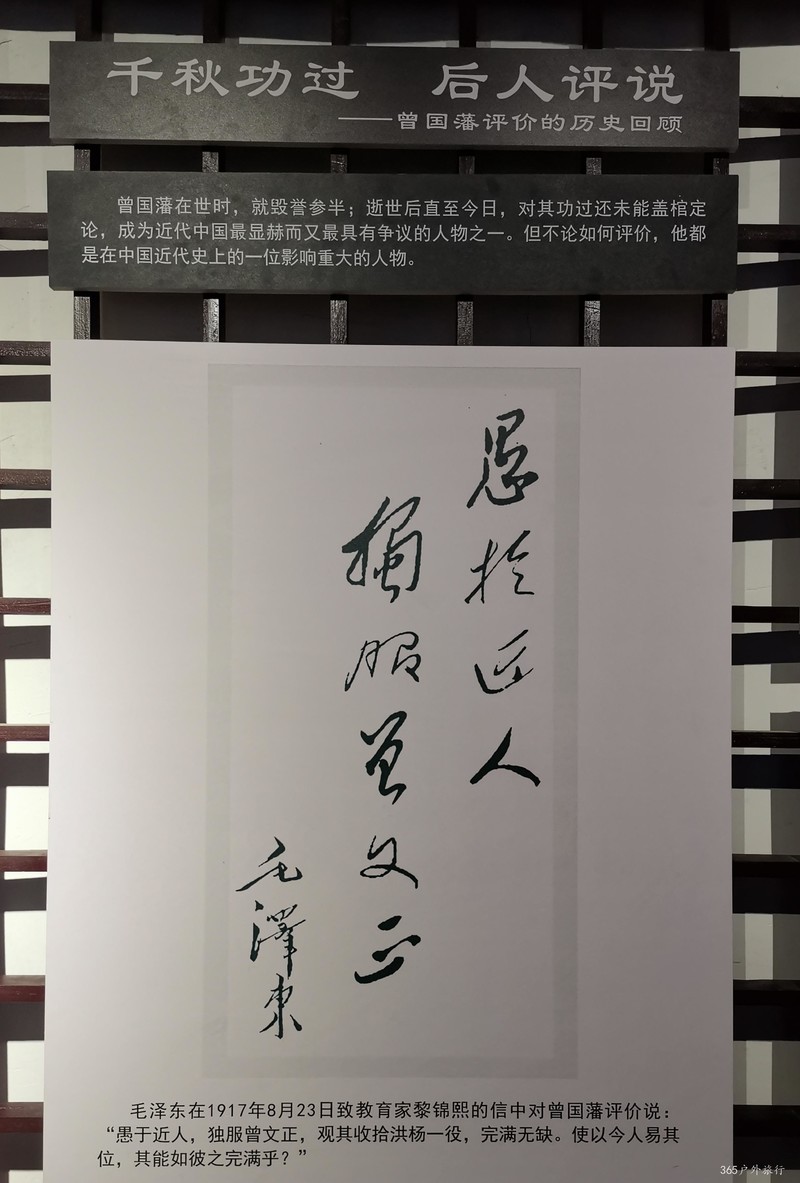 千秋功过　后人评说
——曾国藩评价的历史回顾
曾国藩在世时，就毁誉参半；逝世后直至今日，对其功过还未能盖棺定
论，成为近代中国最显赫而又最具有争议的人物之一。但不论如何评价，他都
是在中国近代史上的一位影响重大的人物。
愚於近人
獨服曾文正
毛澤東
毛泽东在1917年8月23日致教育家黎锦熙的信中对曾国藩评价说：
“愚于近人，独服曾文正，观其收拾洪杨一役，完满无缺。使以今人易其
位，其能如彼之完满乎？”
365户外旅行